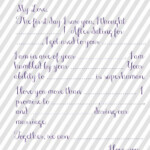 My Love,
The first day I saw you, I thought
. After dating for
, I got used to your
I am in awe of your . I am
humbled by your . Your
ability to is superhuman.
I love you more than . I
promise to
and during our
marriage.
Together, we can
I love you,